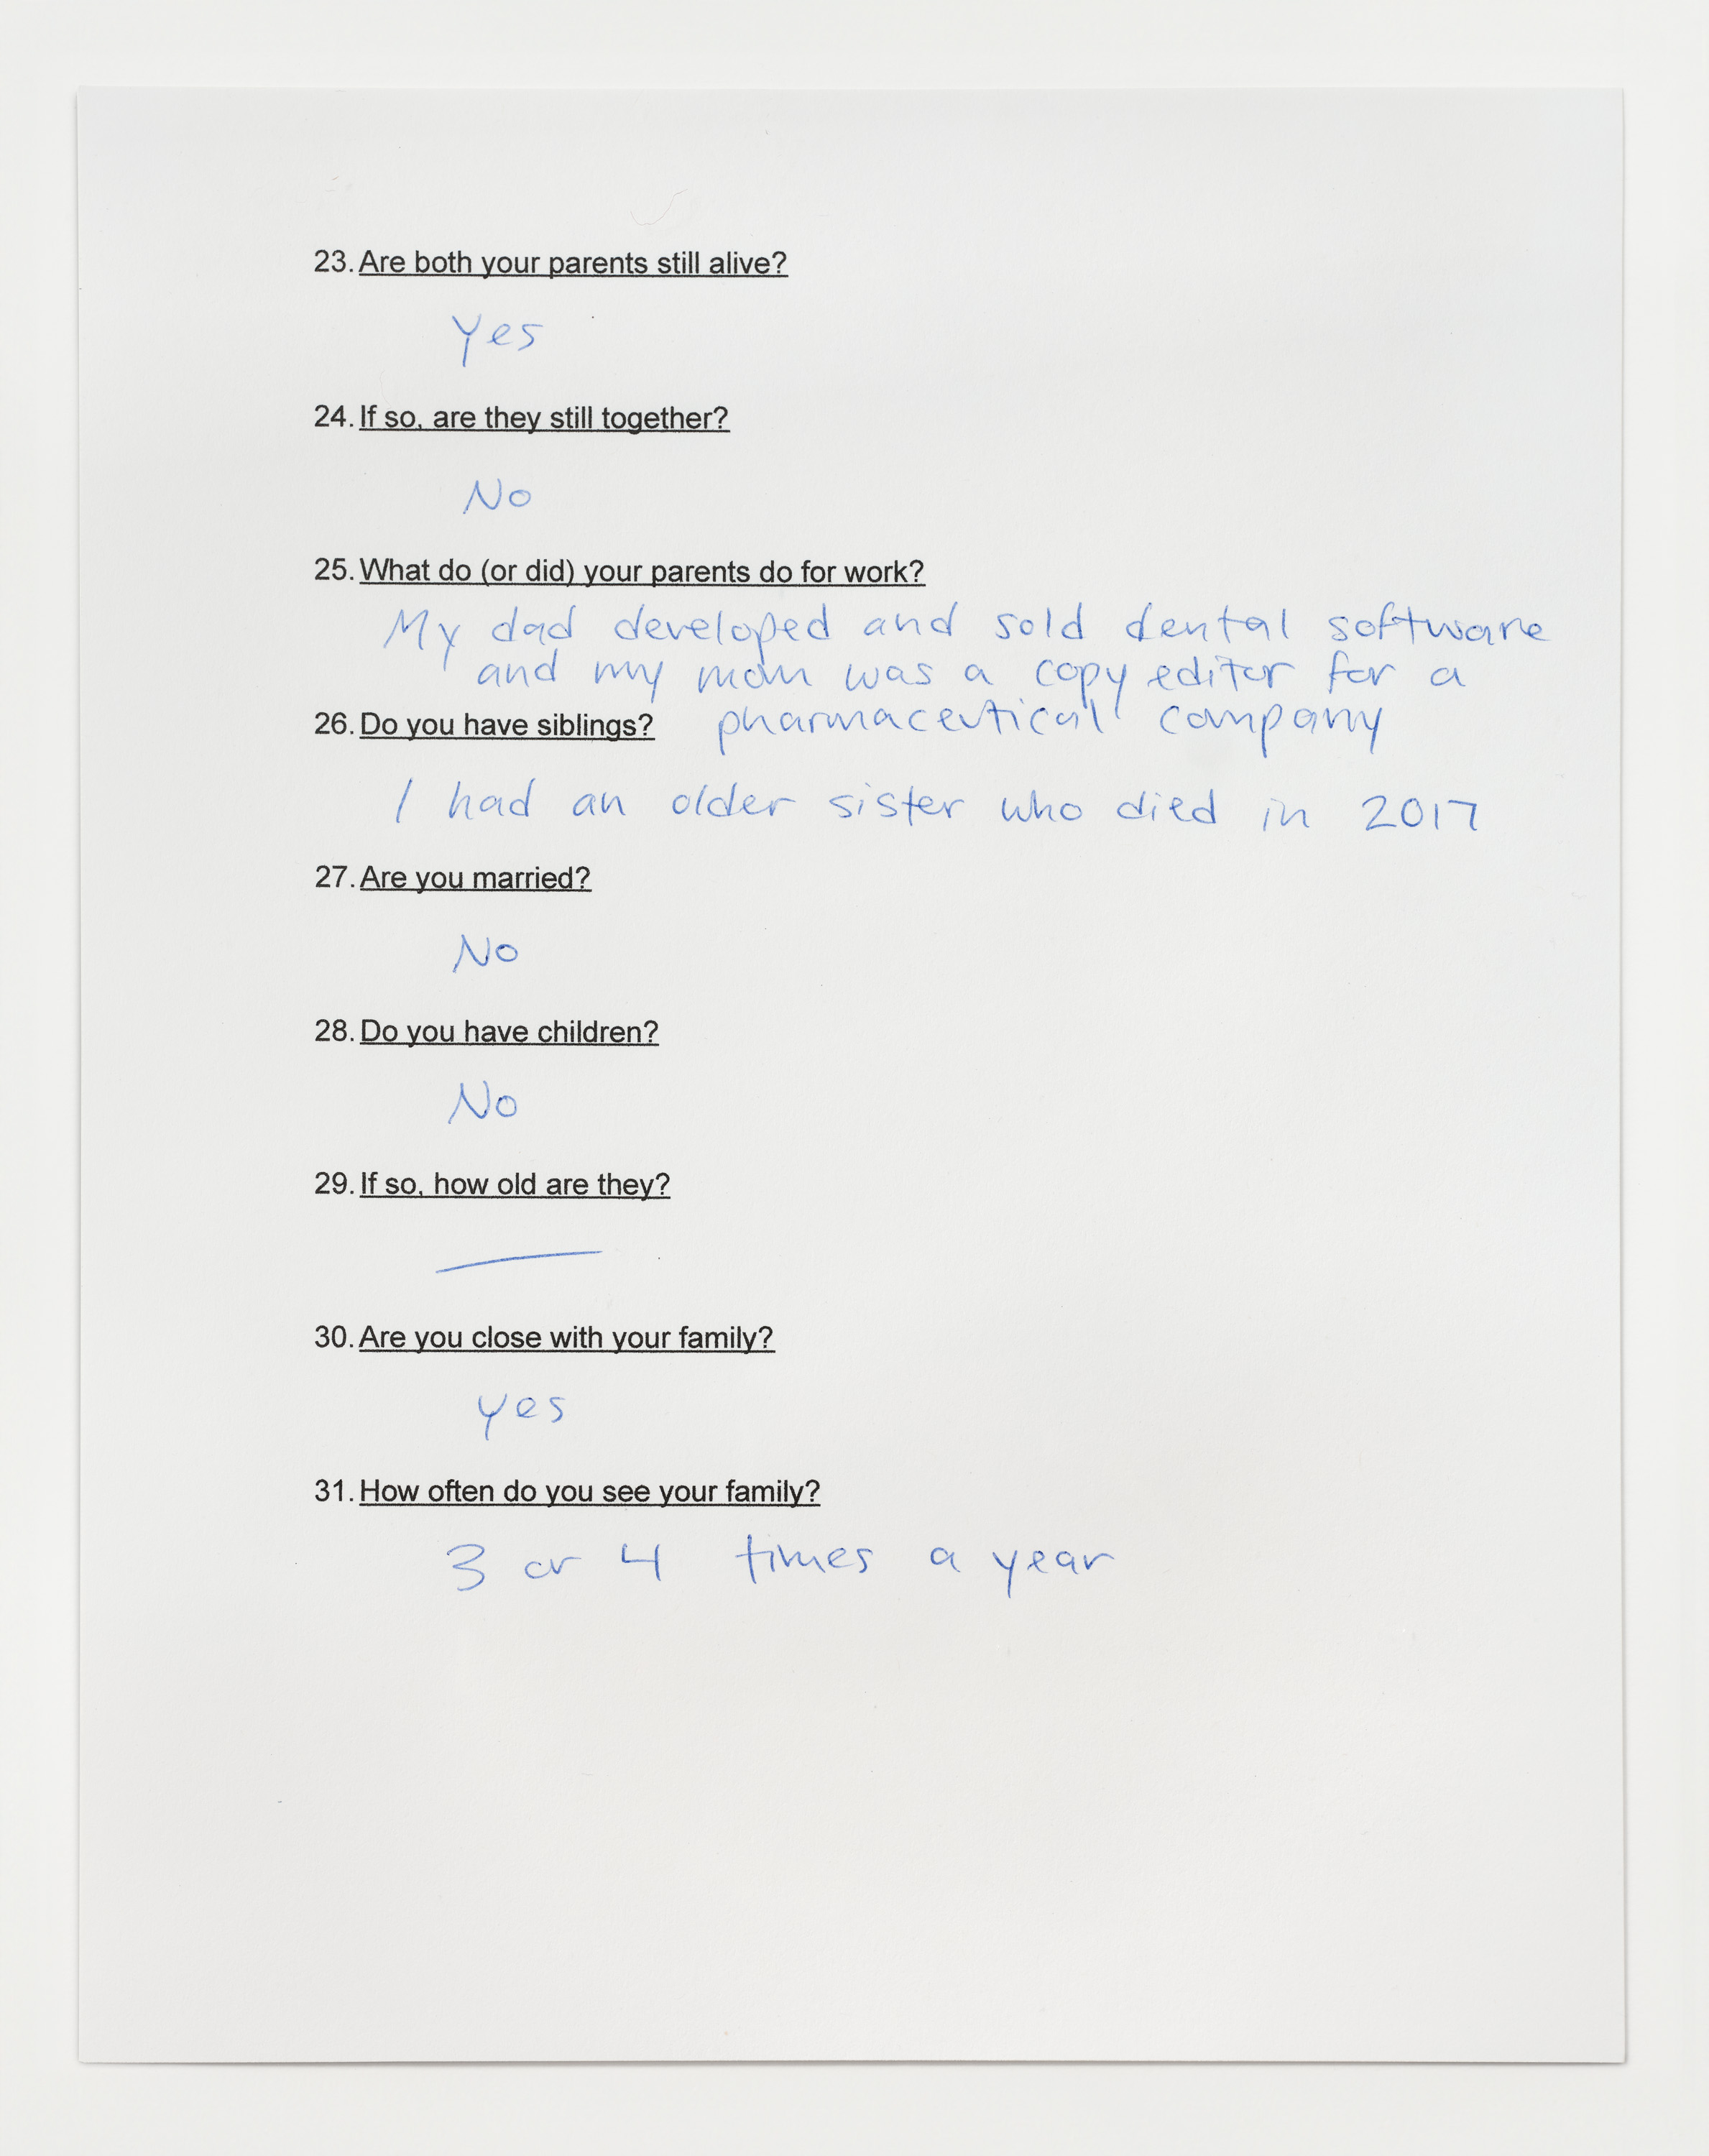 23. Are both your parents still alive?
Yes
24. If so, are they still together?
No
25. What do (or did) your parents do for work?
My dad developed and sold dental software
and my mom was a copy editor for a
pharmaceutical company
26. Do you have siblings?
I had an older sister who died in 2017
27. Are you married?
No
28. Do you have children?
No
29. If so, how old are they?
30. Are you close with your family?
yes
31. How often do you see your family?
3 or 4 times a year